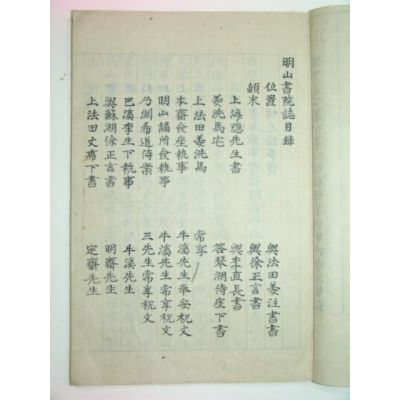 明山書院誌目錄
位置 與法田姜注書書
顛末 與徐正言書
上海隱先生書 與李直長書
姜洗馬宅 答琴湖侍座下書
上法田姜洗馬 常享
本齋僉座執事 牛溪先生奉安祝文
明山謫所僉執事 牛溪先生常享祝文
乃嗣希道侍案 三先生常享祝文
巴溪李生下執事 牛溪先生
與蘇湖徐正言書 明齋先生
上法田丈席下書 定齋先生